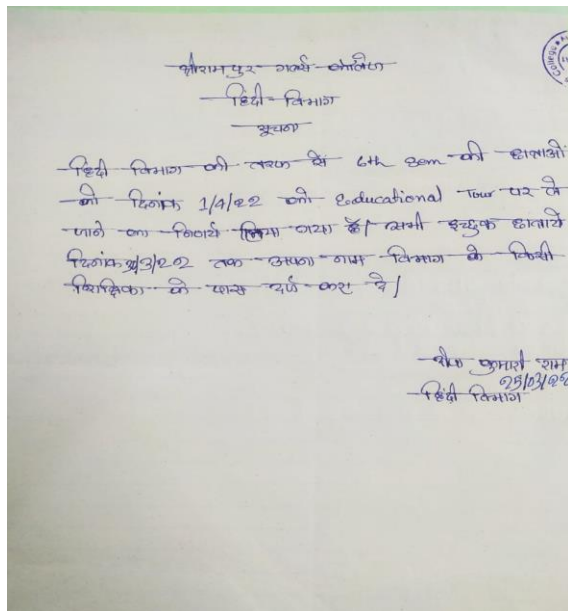 गर्ल्स कॉलेज
हिंदी-विभाग
सूचना
हिंदी विभाग की तरफ से 6th Sem की छात्राओं
को दिनांक 1/4/22 को Educational Tour पर ले
जाने का निर्णय लिया गया है। सभी इच्छुक छात्रायें
दिनांक /3/22 तक अपना नाम विभाग के किसी
शिक्षिका के पास दर्ज करा दें।
कुमारी
25/03/22
हिंदी विभाग
College